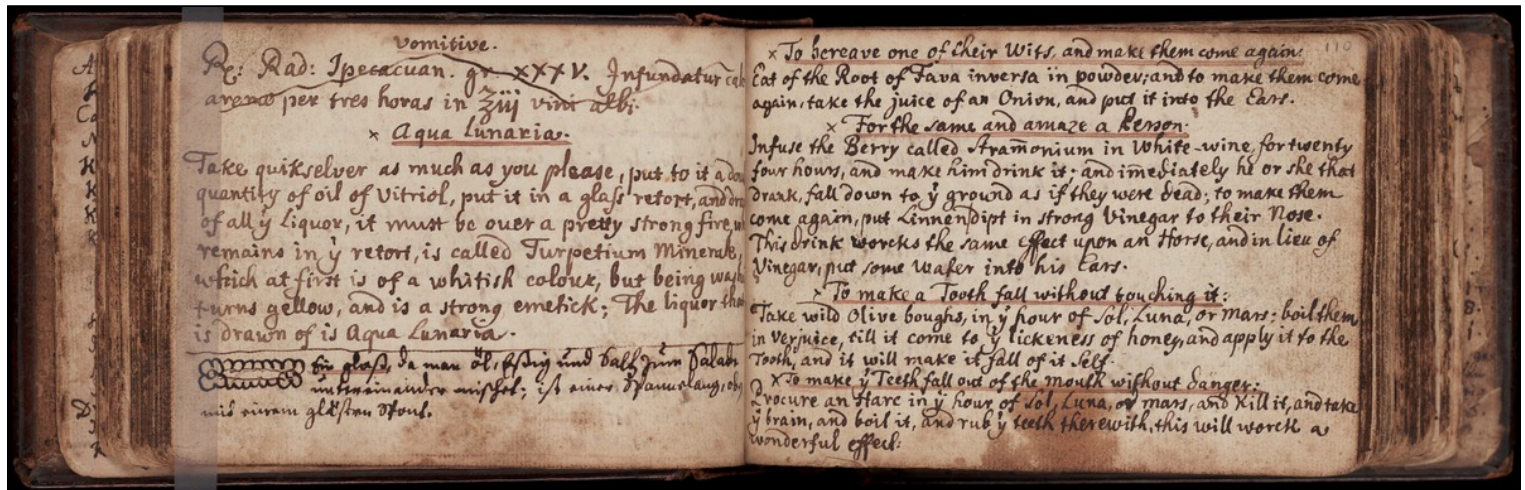 vomitive.
℞: Rad: Ipecacuan. gr. XXXV. Infundatur cal
arena per tres horas in ℥iij vini albi.
× Aqua Lunaria.
Take quikselver as much as you please, put to it a dou
quantity of oil of Vitriol, put it in a glass retort, and dra
of all ÿ Liquor, it must be over a pretty strong fire, w
remains in ÿ retort, is called Turpetium Minerale,
which at first is of a whitish colour, but being wash
turns yellow, and is a strong emetick; The liquor that
is drawn of is Aqua Lunaria.
Ein glaß, da man öl, Eßig und Saltz zum Salade
untereinander mischet; ist einer Spanne lang,
mit einem
110
× To bereave one of their Wits, and make them come again:
Eat of the Root of Fava inversa in powder; and to make them come
again, take the juice of an Onion, and put it into the Ears.
× For the same and amaze a Person:
Infuse the Berry called Stram̄onium in White-wine, for twenty
four hours, and make him drink it; and im̄ediately he or she that
drank, fall down to ÿ ground as if they were dead; to make them
come again, put Linnen dipt in strong Vinegar to their Nose.
This drink worcks the same effect upon an Horse, and in lieu of
Vinegar, put some water into his Ears.
× To make a Tooth fall without touching it:
Take wild Olive boughs, in ÿ hour of Sol, Luna, or Mars; boil them
in Verjuice, till it come to ÿ lickeness of honey, and apply it to the
Tooth, and it will make it fall of it Self.
× To make ÿ Teeth fall out of the mouth without danger:
Procure an Hare in ÿ hour of Sol, Luna, or mars, and Kill it, and take
ÿ brain, and boil it, and rub ÿ teeth therewith, this will worck a
wonderful effect: